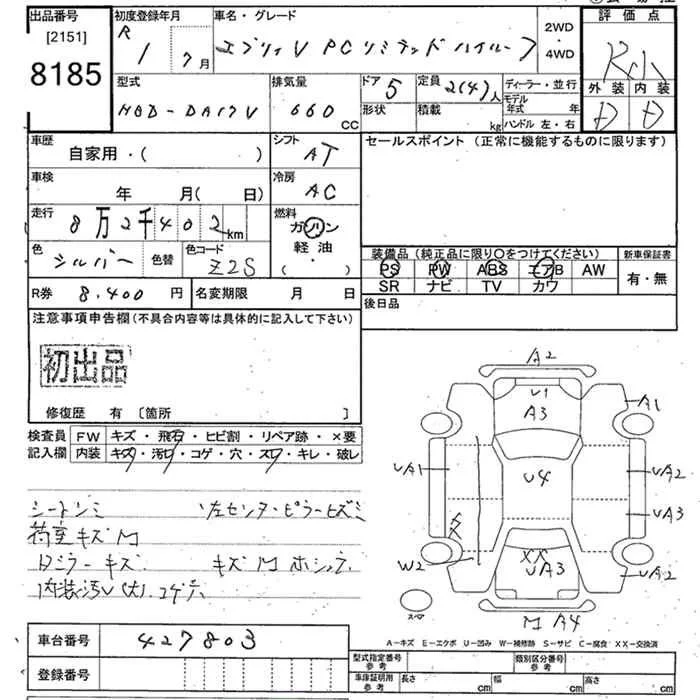 出品番号
[2151]
8185
初度登録年月
R 1年 7月
車名・グレード
エブリィV PCリミテッドハイルーフ
2WD
・
4WD
評価点
外装 内装
D D
型式
HBD-DA17V
排気量
660 CC
ドア
5
形状
定員
2(4)人
積載
kg
ディーラー・並行
モデル年式 年
ハンドル 左・右
車歴
自家用・( )
シフト
AT
セールスポイント (正常に機能するものに限ります)
車検
年 月( 日)
冷房
AC
走行
8万2千402km
燃料
ガソリン
軽油
( ・ )
色
シルバー
色替
色コード
Z2S
装備品 (純正品に限り○をつけてください)
PS PW ABS エアB AW
SR ナビ TV カワ
新車保証書
有・無
R券 8,400円
名変期限 月 日
後日品
注意事項申告欄 (不具合内容等は具体的に記入して下さい)
初出品
修復歴 有 [箇所 ]
検査員記入欄
FW キズ・飛石・ヒビ割・リペア跡・×要
内装 キズ・汚レ・コゲ・穴・スレ・キレ・破レ
シートシミ
左センターピラーヒズミ
荷室キズM
キズM
A2
U1
A3
A1
UA1
U4
UA2
UA3
W2
XX
UA3
UA2
スペア
M A4
A-キズ E-エクボ U-凹み W-補修跡 S-サビ C-腐食 XX-交換済
車台番号
427803
登録番号
型式指定番号
参考
類別区分番号
参考
車庫証明用
参考
長さ cm
幅 cm
高さ cm